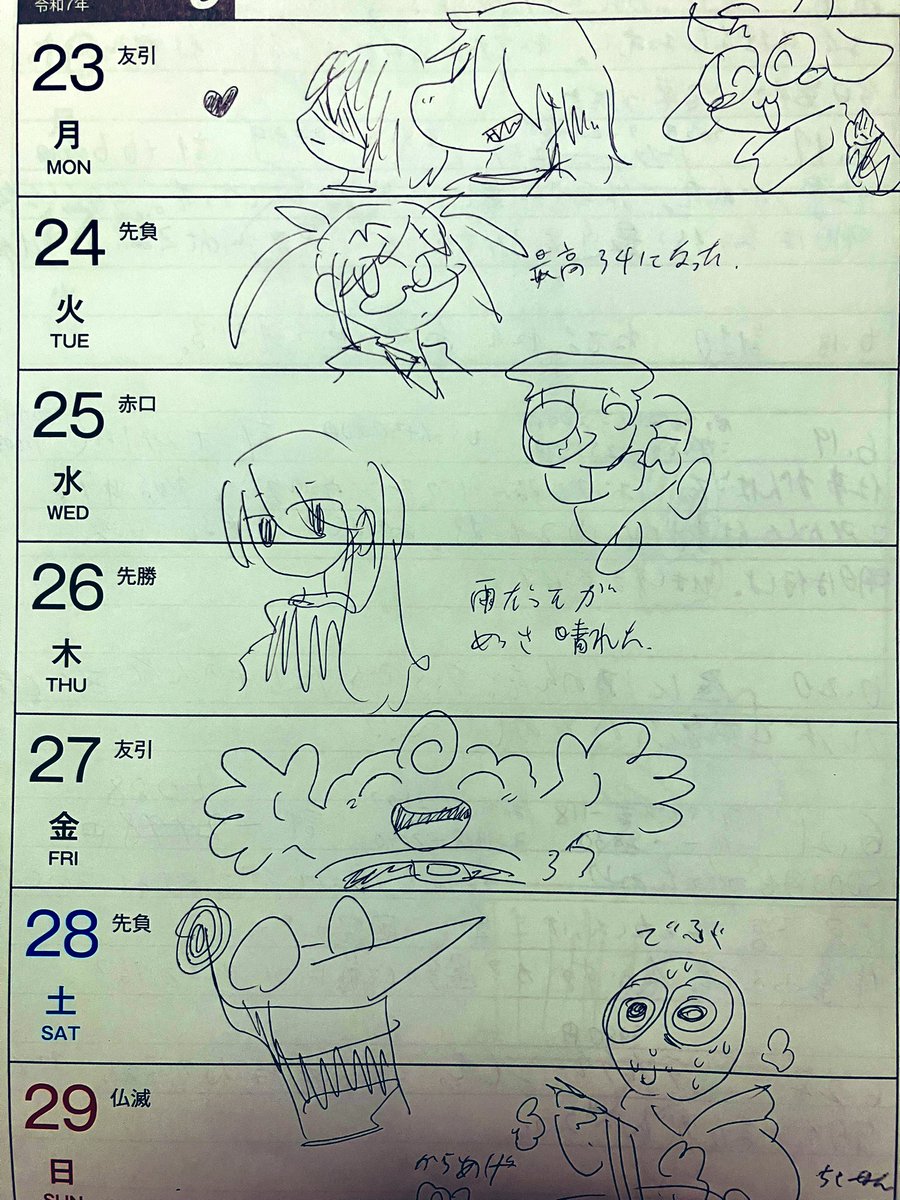 令和7年
23 友引
月
MON
24 先負
火
TUE
最高34になった.
25 赤口
水
WED
26 先勝
木
THU
雨だったが
めっさ晴れた.
27 友引
金
FRI
37
28 先負
土
SAT
でぶや
29 仏滅
日
SUN
からあげ